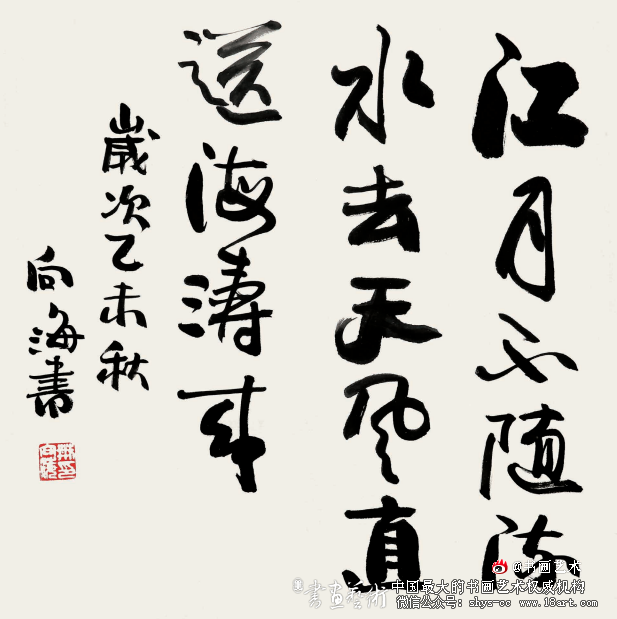 江月不随流
水去天风直
送海涛来
歲次乙未秋
向海書
@书画艺术
書畫藝術
中国最大的书画艺术权威机构
微信公众号：shys-cc www.18art.com